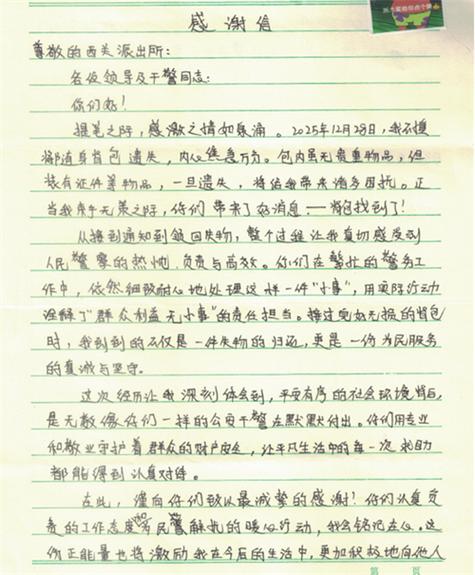 感谢信
尊敬的西关派出所：
各位领导及干警同志：
你们好！
提笔之际，感激之情如泉涌。2025年12月28日，我不慎
将随身背包遗失，内心焦急万分。包内虽无贵重物品，但
装有证件等物品，一旦遗失，将给我带来诸多困扰。正
当我束手无策之际，你们带来了好消息——背包找到了！
从接到通知到领回失物，整个过程让我真切感受到
人民警察的热忱、负责与高效。你们在繁忙的警务工
作中，依然细致耐心地处理这样一件"小事"，用实际行动
诠释了"群众利益无小事"的责任担当。接过完好无损的背包
时，我感到的不仅是一件失物的归还，更是一份为民服务
的真诚与坚守。
这次经历让我深刻体会到，平安有序的社会环境背后，
是无数像你们一样的公安干警在默默付出。你们用专业
和敬业守护着群众的财产安全，让平凡生活中的每一次求助
都能得到认真对待。
在此，谨向你们致以最诚挚的感谢！你们认真负
责的工作态度和为民警解忧的暖心行动，我会铭记在心。这
份正能量也将激励我在今后的生活中，更加积极地向他人
第 页